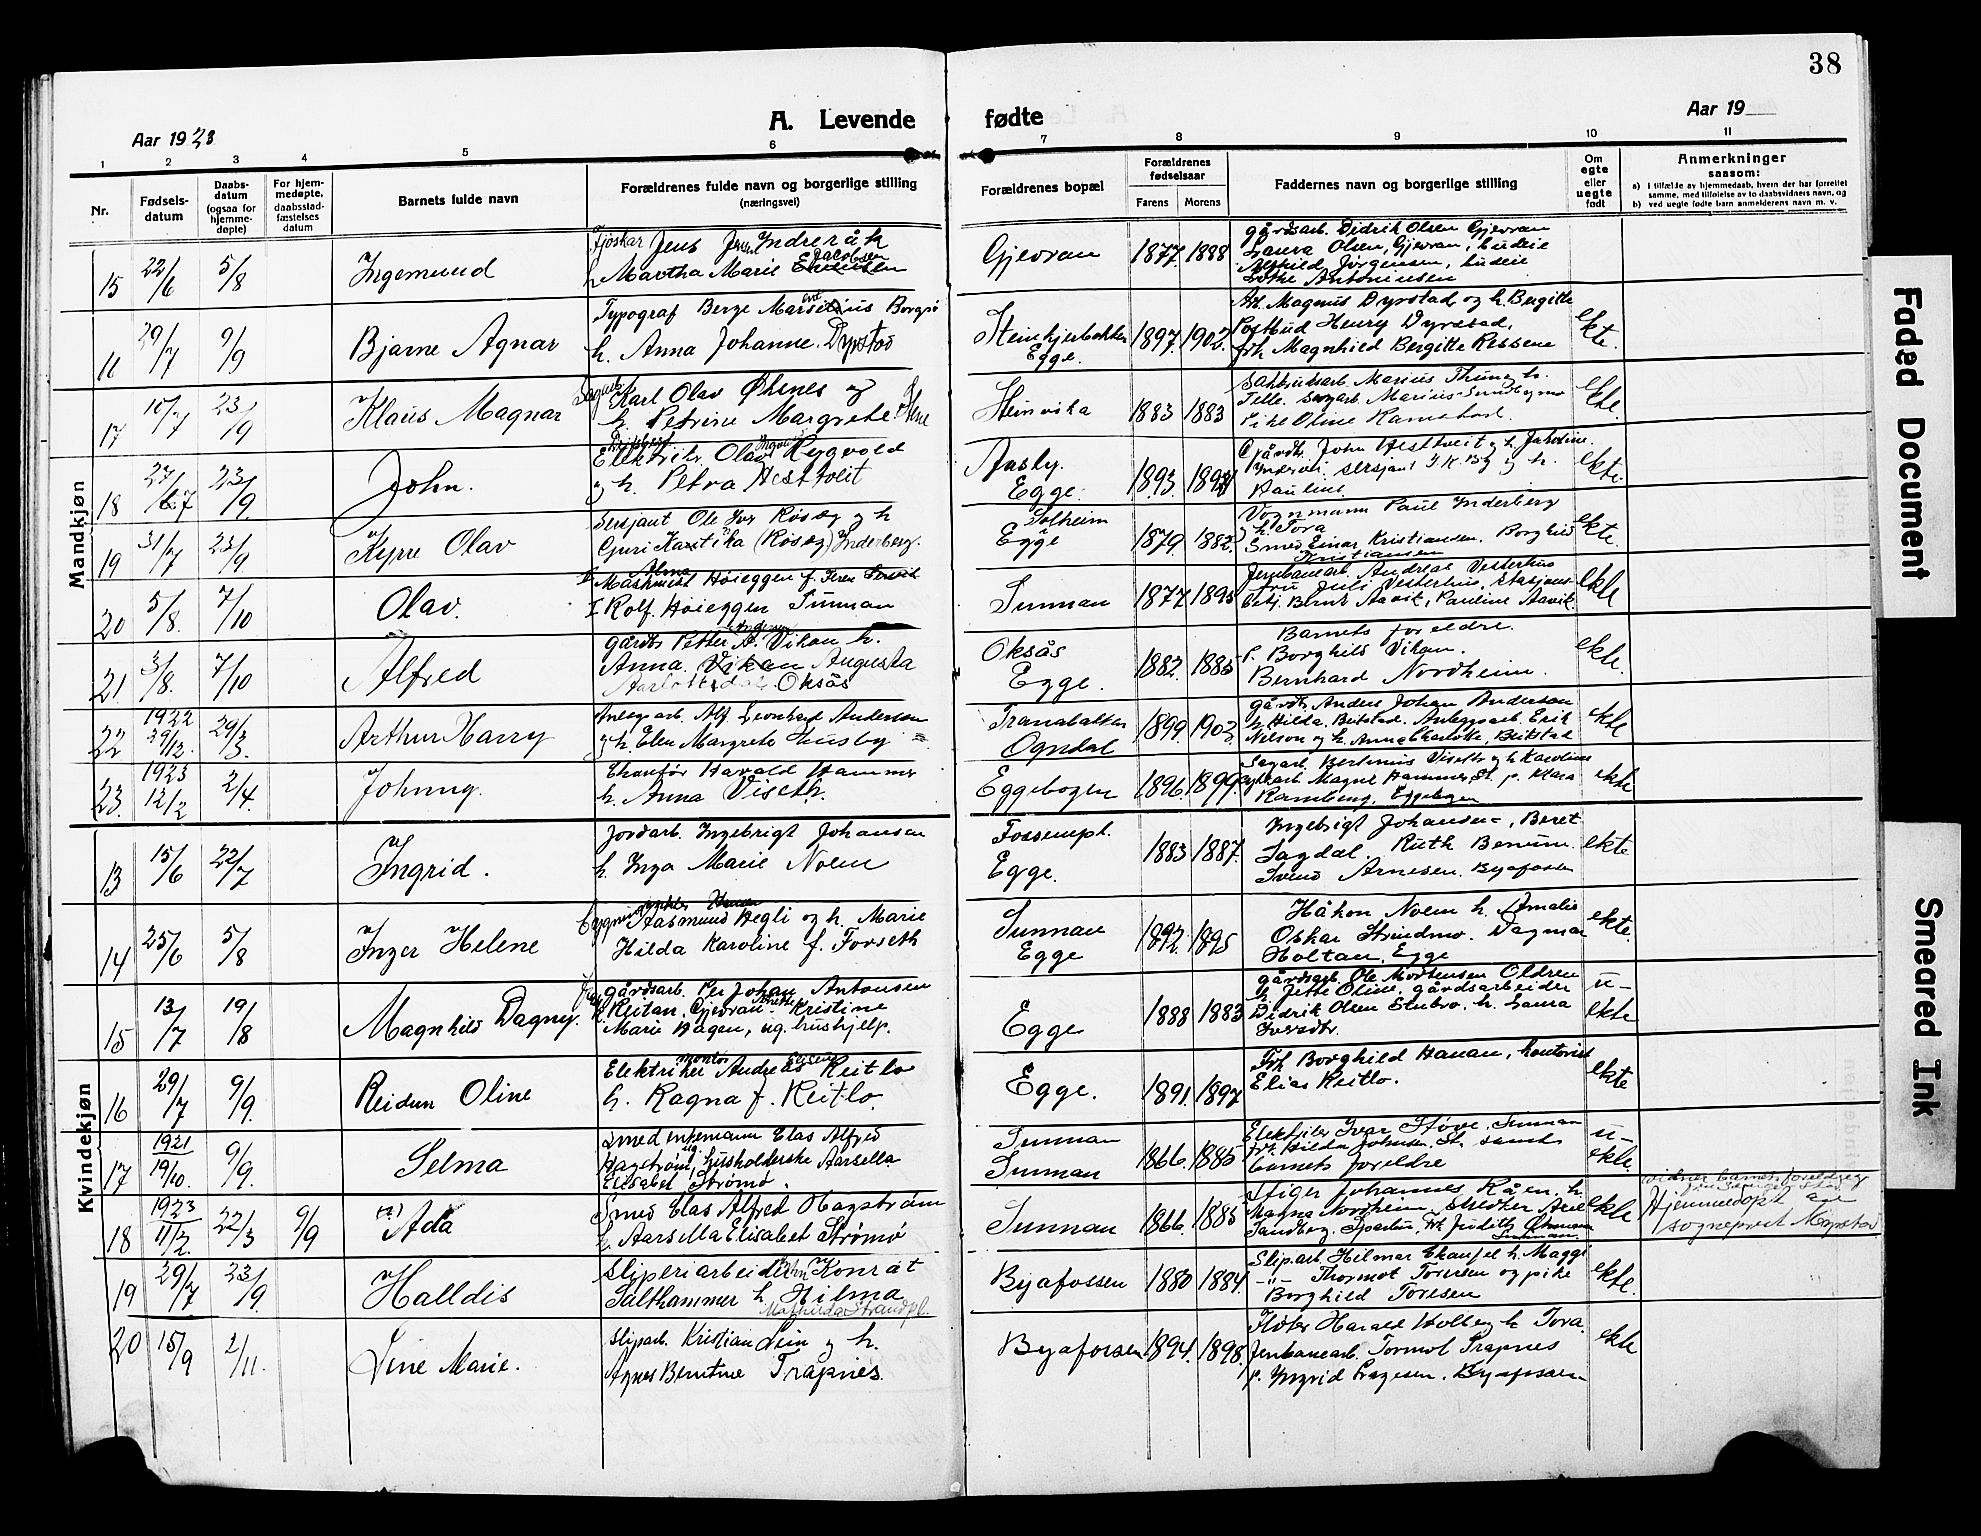 38
A. Levende fødte
Aar 1923
Aar 19
1 2 3 4 5 6 7 8 9 10 11
Nr.
Fødsels-
datum
Daabs-
datum
(ogsaa for
hjemme-
døpte)
For hjem-
medøpte,
daabsstad-
fæstelses
datum
Barnets fulde navn
Forældrenes fulde navn og borgerlige stilling
(næringsvei)
Forældrenes bopæl
Forældrenes
fødselsaar
Farens
Morens
Faddernes navn og borgerlige stilling
Om
egte
eller
uegte
født
Anmerkninger
saasom:
a) i tilfælde av hjemmedaab, hvem der har forrettet
samme, med tilføielse av to daabsvidners navn, og
b) ved uegte fødte barn anmelderens navn m. v.
Mandkjøn
15 22/6 5/8 Ingemund
Fjøskar Jens Indreråk
h. Martha Marie Jacobsen
Gjevran 1877. 1888
gårdsarb. Didrik Olsen Gjevran
Laura Olsen, Gjevran, budeie
Jørgensen, budeie
Antoniusen
11 29/7 9/9 Bjarne Agnar
Typograf Berge Borgsø
h. Anna Johanne Dyrstad
Egge. 1897. 1902.
Arb. Magnus Dyrstad og h. Bergitte
Postbud Henry Dyrstad,
frk Magnhild Bergitte Ressem
ekte.
17 10/7 23/9 Klaus Magnar
Karl Olav Øksnes og
h. Petrine Margrete
Steinvika 1883 1883
Marius Thun og h.
Pike Oline Ramstad.
ekte.
18 27/7 23/9 John.
Elektriker Olav Rygvold
og h. Petra Hestveit
Egge. 1893.
Gårdbr. John Hestveit og h. Jakobine.
sersjant og h.
Pauline.
ekte.
19 31/7 23/9 Kyrre Olav
Sersjant Ole Ivar Røseg og h
Guri (Røseg) Inderberg.
Solheim
Egge 1879. 1882.
Vognmann Paul Inderberg
og h. Tora
Smed Einar Kristiansen. Borghild
Kristiansen
ekte.
20 5/8. 7/10 Olav.
Alma
Rolf Høieggen Sunnan
Sunnan 1877 1895
Jernbanearb. Andreas Vesterhus
fru Juli Vesterhus, Stasjons-
betj. Bernt Aavik, Pauline Aavik.
ekte
21 3/8. 7/10 Alfred
gårdbr Petter A. Vikan h.
Anna Augusta
Oksås
Oksås
Egge. 1882. 1885
Barnets foreldre.
p. Borghild Vikan.
Bernhard Nordheim.
ekte.
22 1922 29/12. 29/3. Arthur Harry
Anlegsarb. Alf Leonhard Andersen
og h. Elen Margrete Husby
Tranabakken
Ogndal 1899. 1903.
gårdbr. Anders Johan Anderson
h. Hilda, Beitstad. Anlegsarb. Erik
Nilson og h. Anna Charlotte, Beitstad
ekte
23. 1923 12/2 2/4. Johnny.
Chauffør Harald Hammer
h. Anna Viseth.
Eggebogen 1896. 1899.
Sagarb. Bertinius Viseth og h Karoline
Magne Hammer, St. p. Klara
Ramberg, Eggebogen
ekte
Kvindekjøn
13 15/6 22/7 Ingrid.
Jordarb. Ingebrigt Johansen
h. Inga Marie Noem
Fossempl.
Egge. 1883 1887.
Ingebrigt Johansen, Beret
Sagdal. Ruth Benum.
Svend Arnesen. Byafossen
ekte
14 25/6 5/8 Inger Helene
Aasmund Hegli og h. Marie
Hilda Karoline f. Forseth
Sunnan
Egge 1892. 1895
Håkon Noem h. Amalie
Oskar Strindmo. Dagmar
Holtan, Egge
ekte.
15 13/7 19/8 Magnhild Dagny.
gårdsarb. Per Johan Antonsen
Reitan, Gjevran. Kristine
Marie Hagen, ug. hushjelp.
Egge 1888 1883
gårdsarb. Ole Mortensen Oldren
h. Jette Oline, gårdsarbeider
Didrik Olsen Stubro. h. Laura
Iversdtr.
u-
ekte
16 29/7 9/9. Reidun Oline
Elektriker montør Andreas Reitlo
h. Ragna f. Reitlo.
Egge. 1891. 1897
Frk Borghild Hanan, kontorist
Elias Reitlo.
ekte
17 1921 19/10. 9/9. Selma
Smed enkemann Clas Alfred
Hagstrøm, husholderske Aarsella
Elisabet Strømø.
Sunnan
Sunnan 1866. 1885
Elektriker Ivar Støre, Sunnan
frk. Hilda Johnsen, St. samt
barnets foreldre
u-
ekte.
18 1923 11/2. 22/3 9/9 Ada
Smed Clas Alfred Hagstrøm
h. Aarsella Elisabet Strømø
Sunnan 1866. 1885
Stiger Johannes Råen, h.
Magna Nordheim, Snedker Axel
Sandberg, Sparbu, frk. Judith
Sunnan.
ekte
Hjemmedøpt av
sogneprest Myrstad
19 29/7 23/9. Halldis
Sliperiarbeider John Konrat
Salthammer h. Hilma
Mathilda Strandpl.
Byafossen 1880 1884.
Sliparb. Hilmar h. Maggi
-"- Thormot Toresen og pike
Borghild Toresen
ekte.
20 15/9 2/11. Line Marie.
Sliparb. Kristian Lein og h.
Agnes Berntine Trapnes.
Byafossen 1894. 1898.
Fløter Harald Holberg h Tora.
Jernbanearb. Tormot Trapnes
p. Ingrid Byafossen
ekte
Faded Document
Smeared Ink